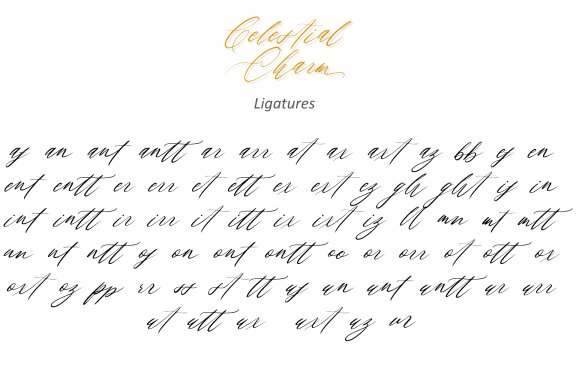 Celestial
Charm
Ligatures
as an ant antt ar arr at ax axt az bb es en
ent entt er err et ett ex ext ez gh ght is in
int intt ir irr it itt ix ixt iz ll mn mt mtt
nt ntt os on ont ontt oo or orr ot ott ox
oxt oz pp rr ss st tt us un unt untt ur urr
ut utt ux uxt uz